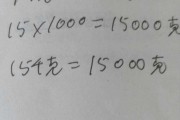 15×1000=15000克
154克=15000克